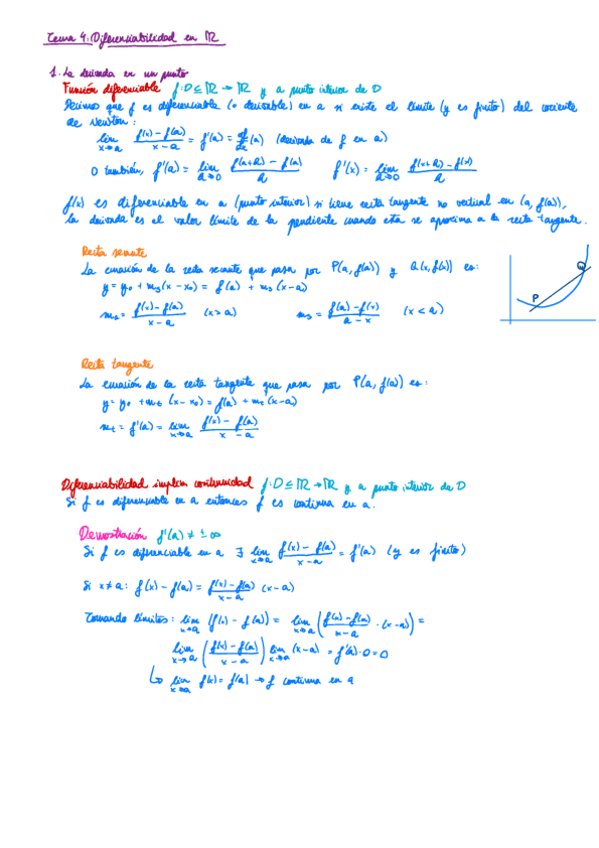 Tema 4: Diferenciabilidad en ℝ
1. La derivada en un punto
Función diferenciable f: D ⊆ ℝ → ℝ y a punto interior de D
Decimos que f es diferenciable (o derivable) en a si existe el límite (y es finito) del cociente
de Newton:
lim x→a (f(x) - f(a))/(x - a) = f'(a) = df/dx (a) (derivada de f en a)
O también, f'(a) = lim h→0 (f(a+h) - f(a))/h f'(x) = lim h→0 (f(x+h) - f(x))/h
f(x) es diferenciable en a (punto interior) si tiene recta tangente no vertical en (a, f(a)),
la derivada es el valor límite de la pendiente cuando esta se aproxima a la recta tangente.
Recta secante
La ecuación de la recta secante que pasa por P(a, f(a)) y Q(x, f(x)) es:
y = y₀ + mₛ(x - x₀) = f(a) + mₛ(x - a)
mₛ = (f(x) - f(a))/(x - a) (x > a) mₛ = (f(a) - f(x))/(a - x) (x < a)
P
Q
Recta tangente
La ecuación de la recta tangente que pasa por P(a, f(a)) es:
y = y₀ + mₜ(x - x₀) = f(a) + mₜ(x - a)
mₜ = f'(a) = lim x→a (f(x) - f(a))/(x - a)
Diferenciabilidad implica continuidad f: D ⊆ ℝ → ℝ y a punto interior de D
Si f es diferenciable en a entonces f es continua en a.
Demostración f'(a) ≠ ±∞
Si f es diferenciable en a ∃ lim x→a (f(x) - f(a))/(x - a) = f'(a) (y es finito)
Si x ≠ a: f(x) - f(a) = (f(x) - f(a))/(x - a) (x - a)
Tomando límites: lim x→a (f(x) - f(a)) = lim x→a ((f(x) - f(a))/(x - a) · (x - a)) =
lim x→a ((f(x) - f(a))/(x - a)) lim x→a (x - a) = f'(a) · 0 = 0
↳ lim x→a f(x) = f(a) → f continua en a